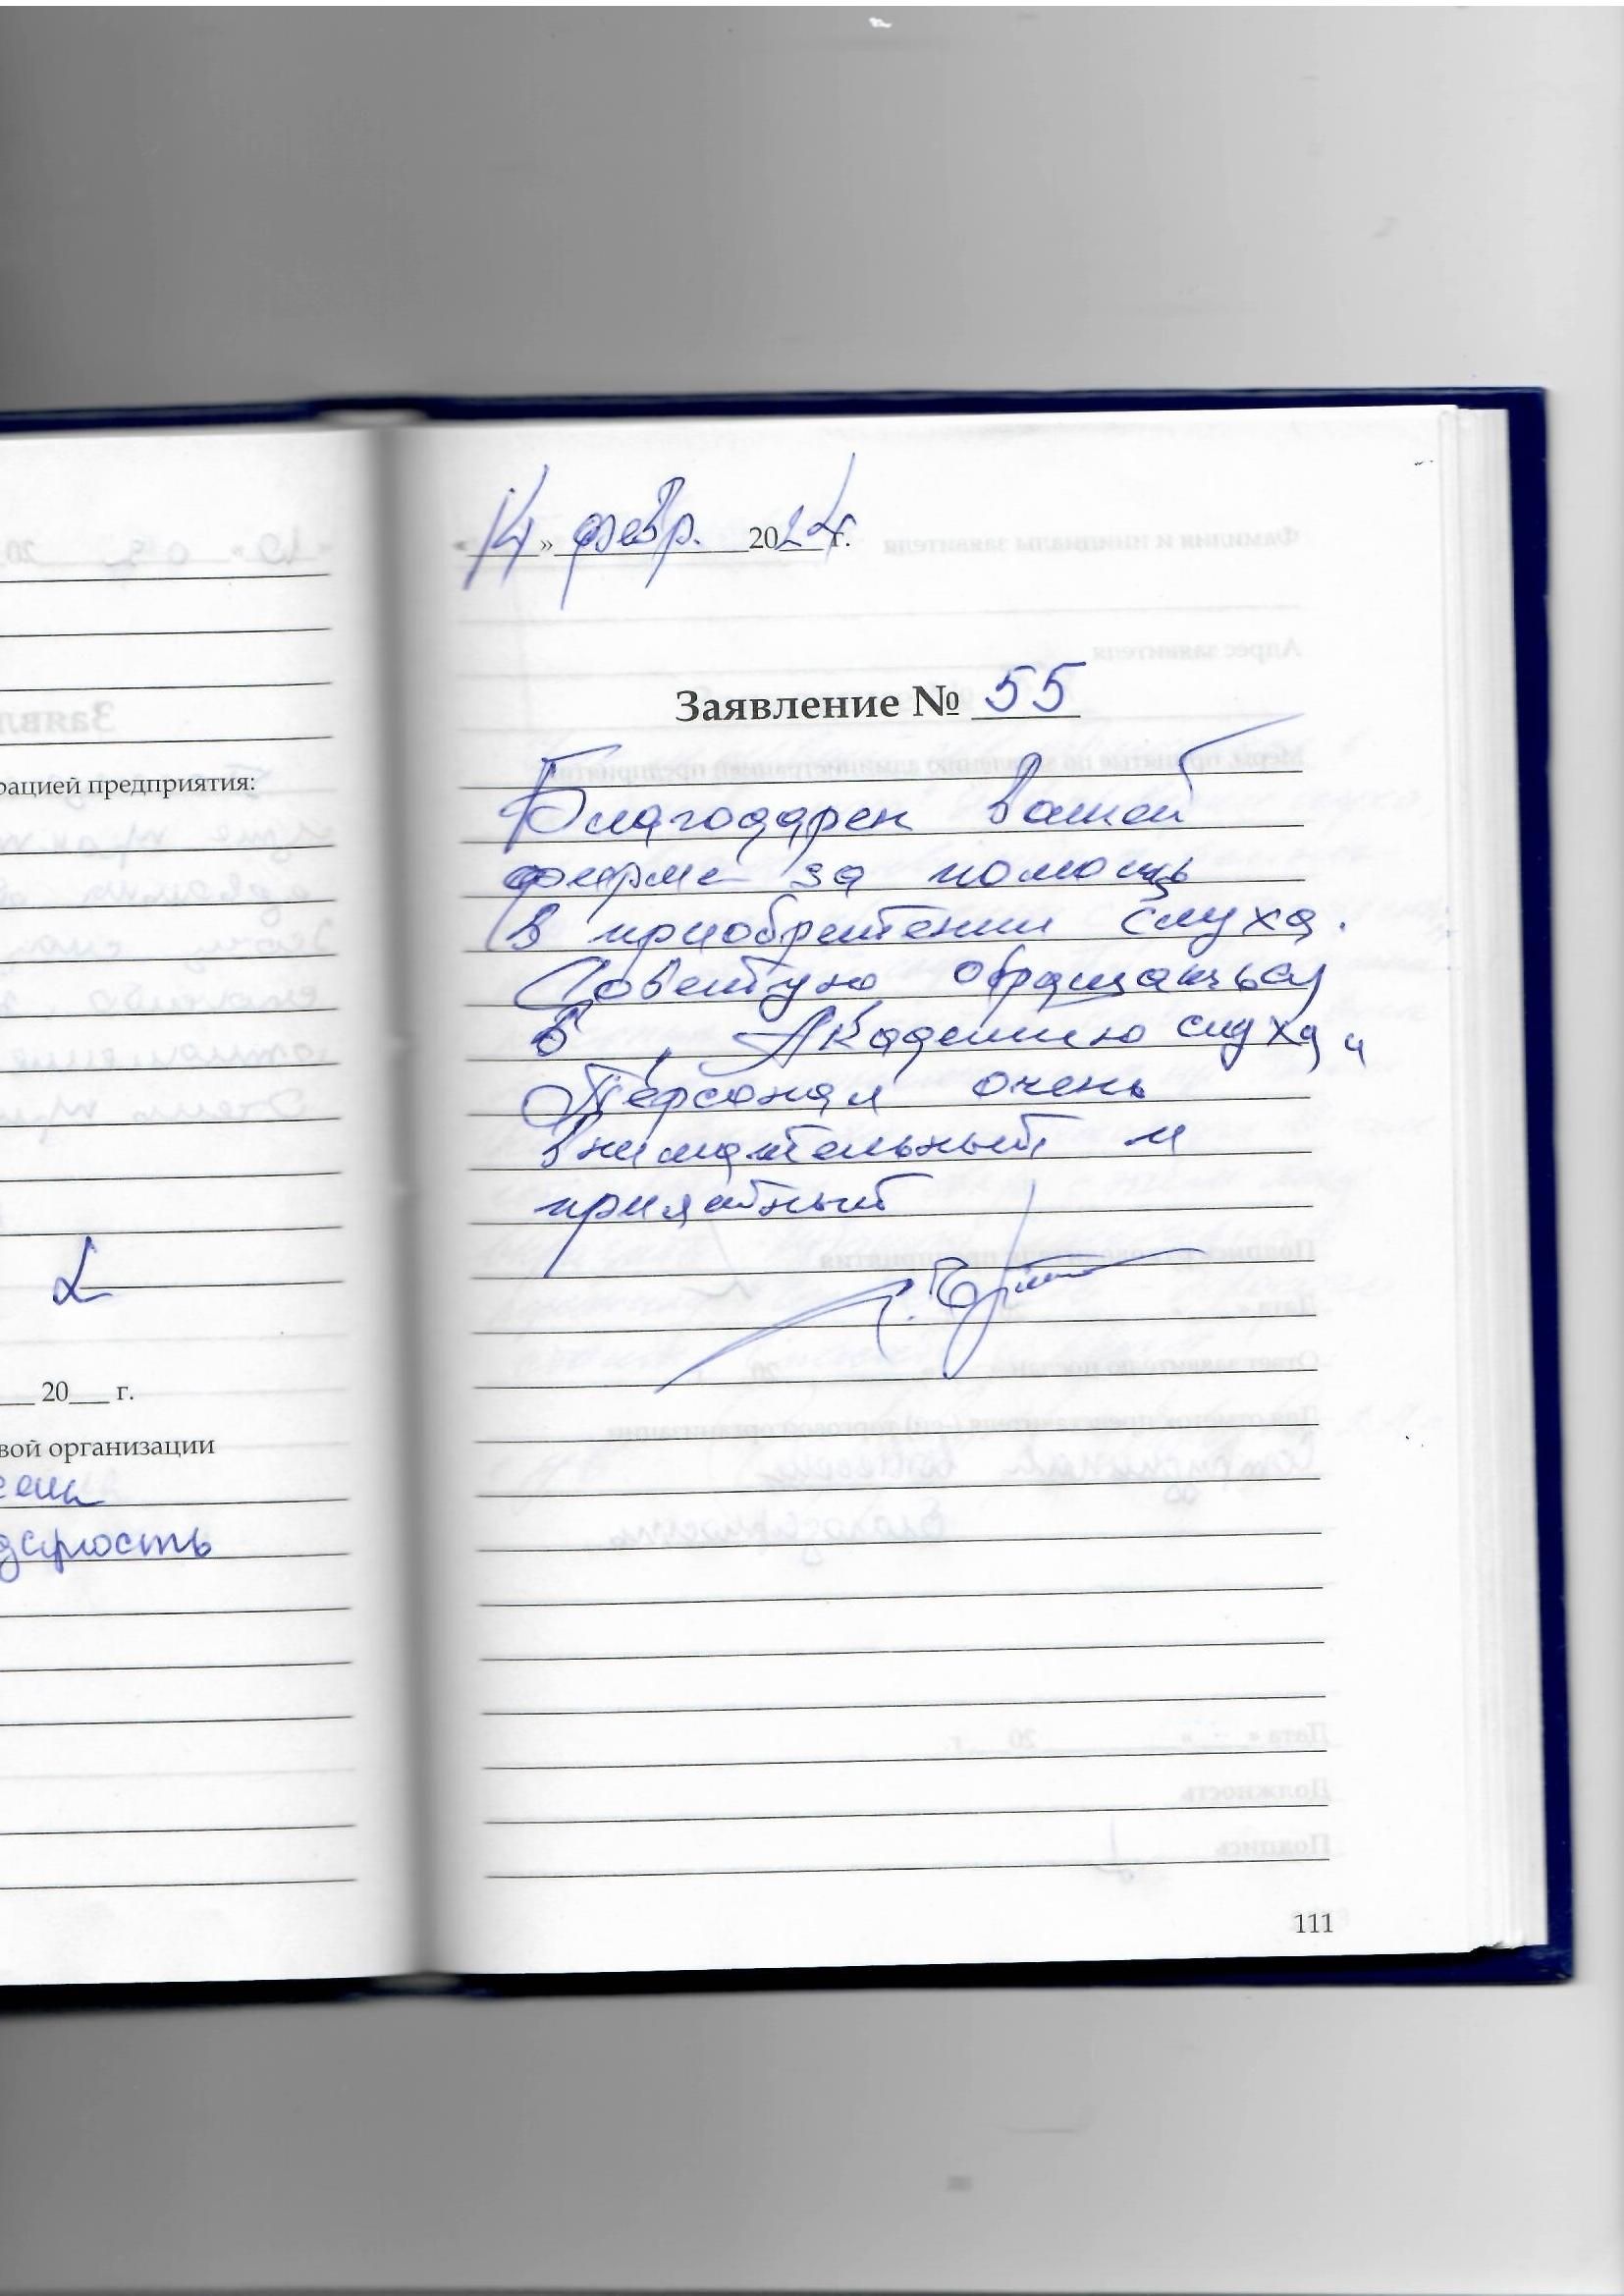 рацией предприятия:
20___ г.
вой организации
дарность
«14» февр. 2024 г.
Заявление № 55
Благодарен вашей
фирме за помощь
в приобретении слуха.
Советую обращаться
в "Академию слуха"
Персонал очень
внимательный и
приятный
111